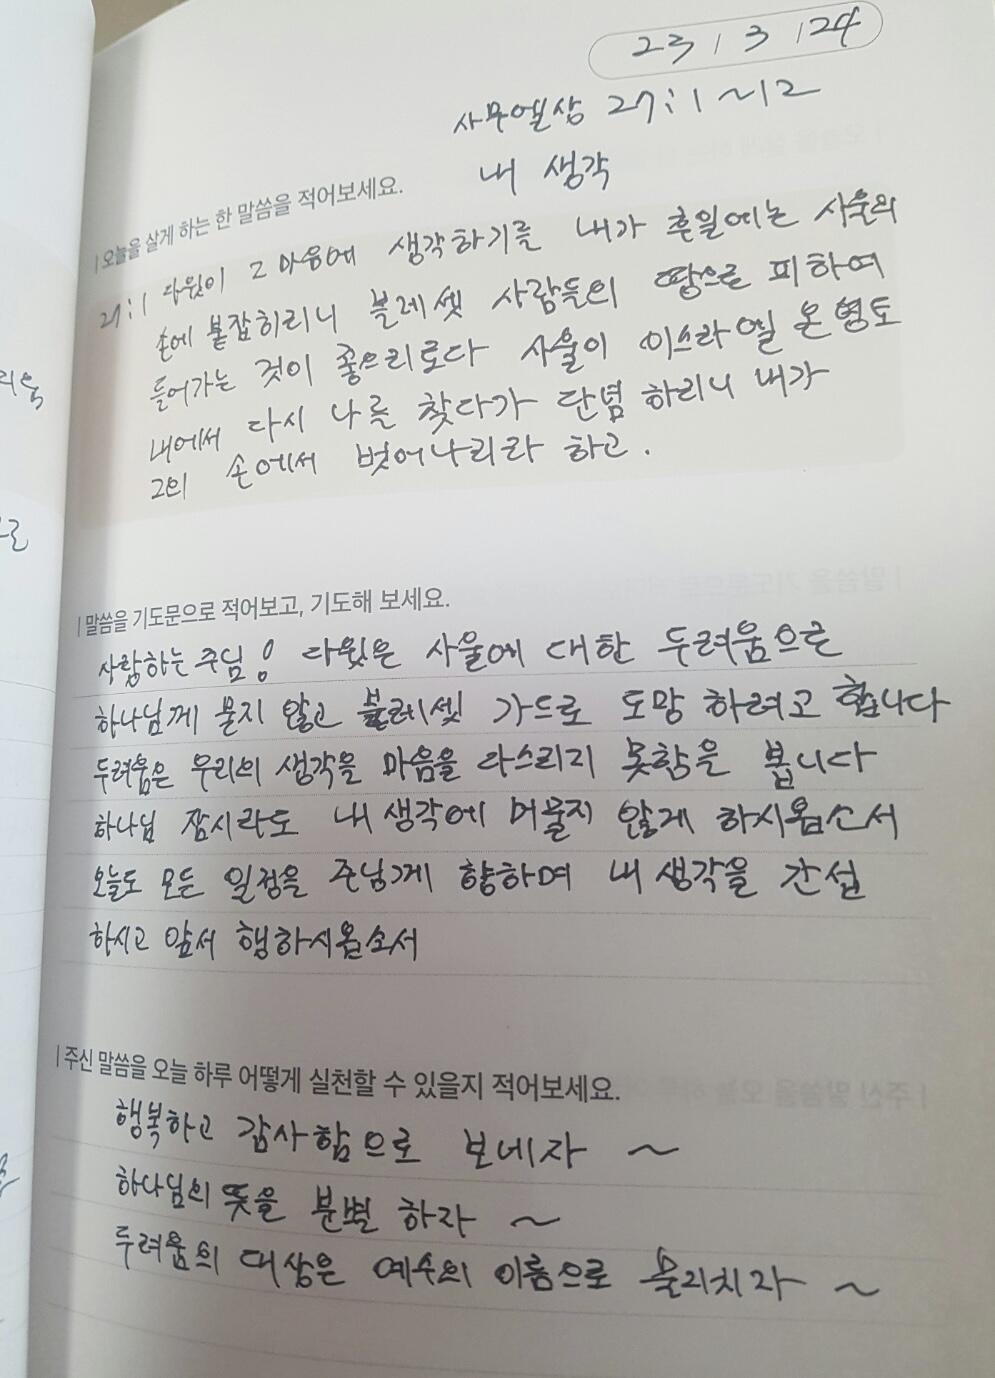 23 / 3 / 24
사무엘상 27:1~12
내 생각
| 오늘을 살게 하는 한 말씀을 적어보세요.
27:1 다윗이 그 마음에 생각하기를 내가 후일에는 사울의
손에 붙잡히리니 블레셋 사람들의 땅으로 피하여
들어가는 것이 좋으리로다 사울이 이스라엘 온 영토
내에서 다시 나를 찾다가 단념 하리니 내가
그의 손에서 벗어나리라 하고.
| 말씀을 기도문으로 적어보고, 기도해 보세요.
사랑하는 주님! 다윗은 사울에 대한 두려움으로
하나님께 묻지 않고 블레셋 가드로 도망 하려고 합니다
두려움은 우리의 생각을 마음을 다스리지 못함을 봅니다
하나님 잠시라도 내 생각에 머물지 않게 하시옵소서
오늘도 모든 일정을 주님께 향하며 내 생각을 간섭
하시고 앞서 행하시옵소서
| 주신 말씀을 오늘 하루 어떻게 실천할 수 있을지 적어보세요.
행복하고 감사함으로 보네자 ~
하나님의 뜻을 분별 하자 ~
두려움의 대상은 예수의 이름으로 물리치자 ~